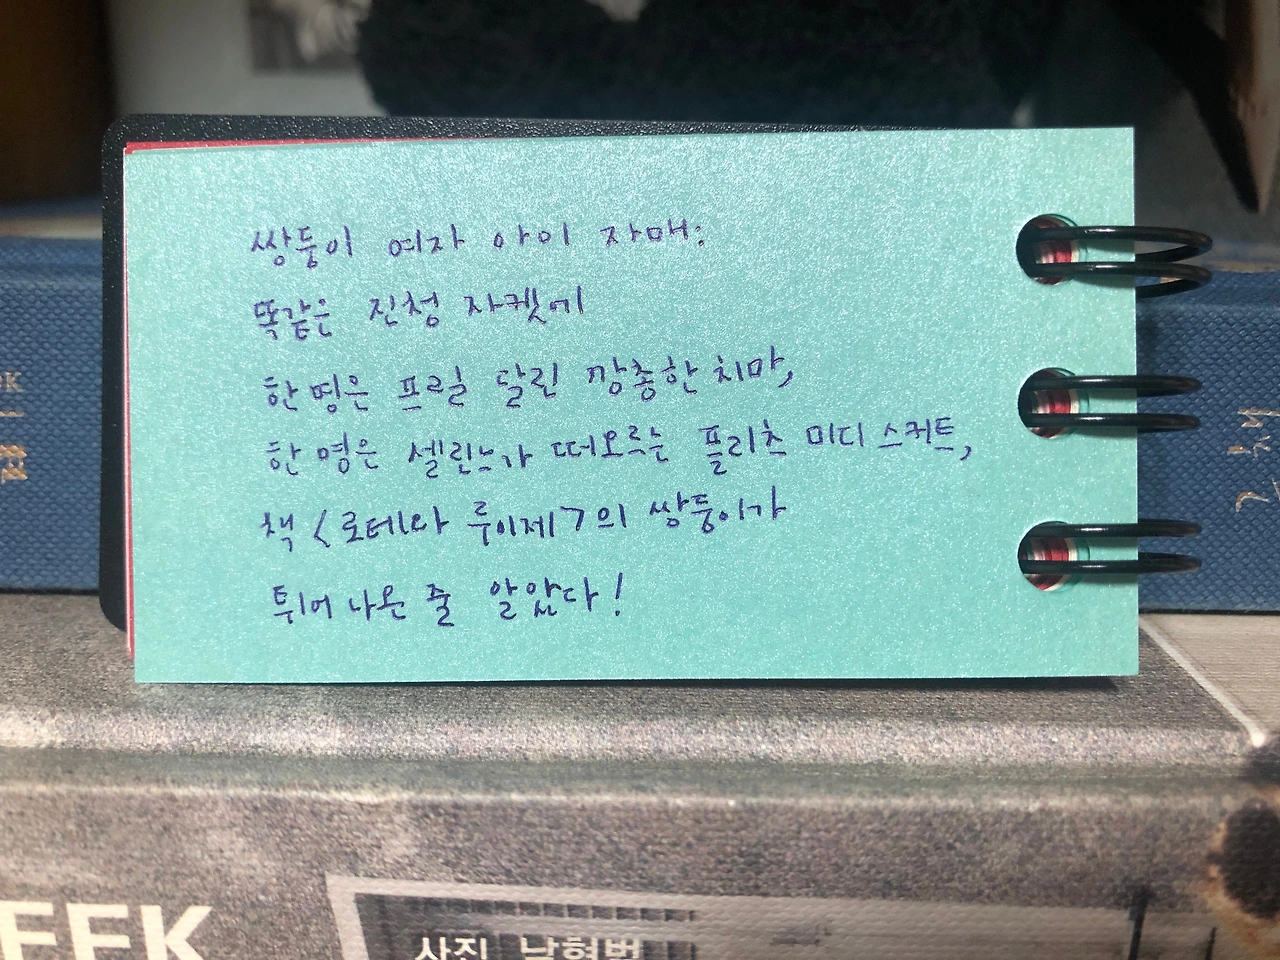 쌍둥이 여자 아이 자매:
똑같은 진청 자켓에
한 명은 프릴 달린 깡총한 치마,
한 명은 셀린느가 떠오르는 플리츠 미디 스커트,
책 <로테와 루이제>의 쌍둥이가
튀어 나온 줄 알았다!
EEK
사진 남현범